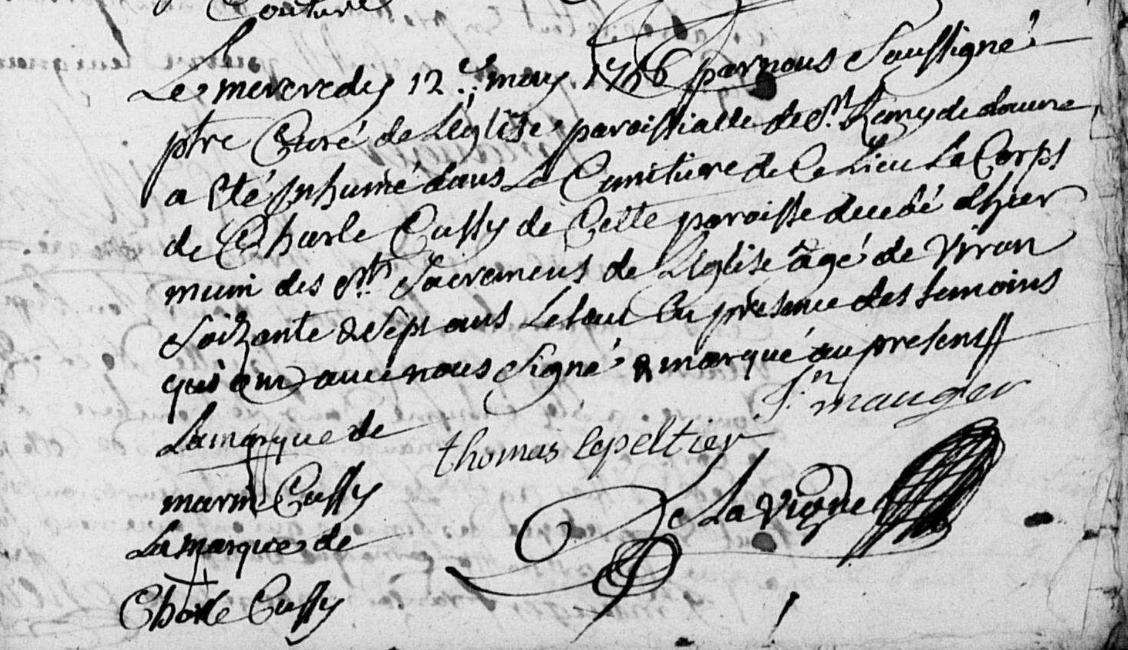 Couture
Le mercredy 12.e may 1756 par nous soussigné
ptre Curé de Leglise paroissialle de St Remy de douvre
a été Inhumé dans Le Cimitiere de Ce Lieu Le Corps
de Charle Cussy de Cette paroisse decedé d'hier
muni des Sts Sacremens de L'eglise âgé de viron
soixante & sept ans Le tout En presence des temoins
qui ont avec nous signé & marqué au present
Jn mauger
La marque de
thomas lepeltier
marin Cussy
DeLavigne
La marque de
Charle Cussy